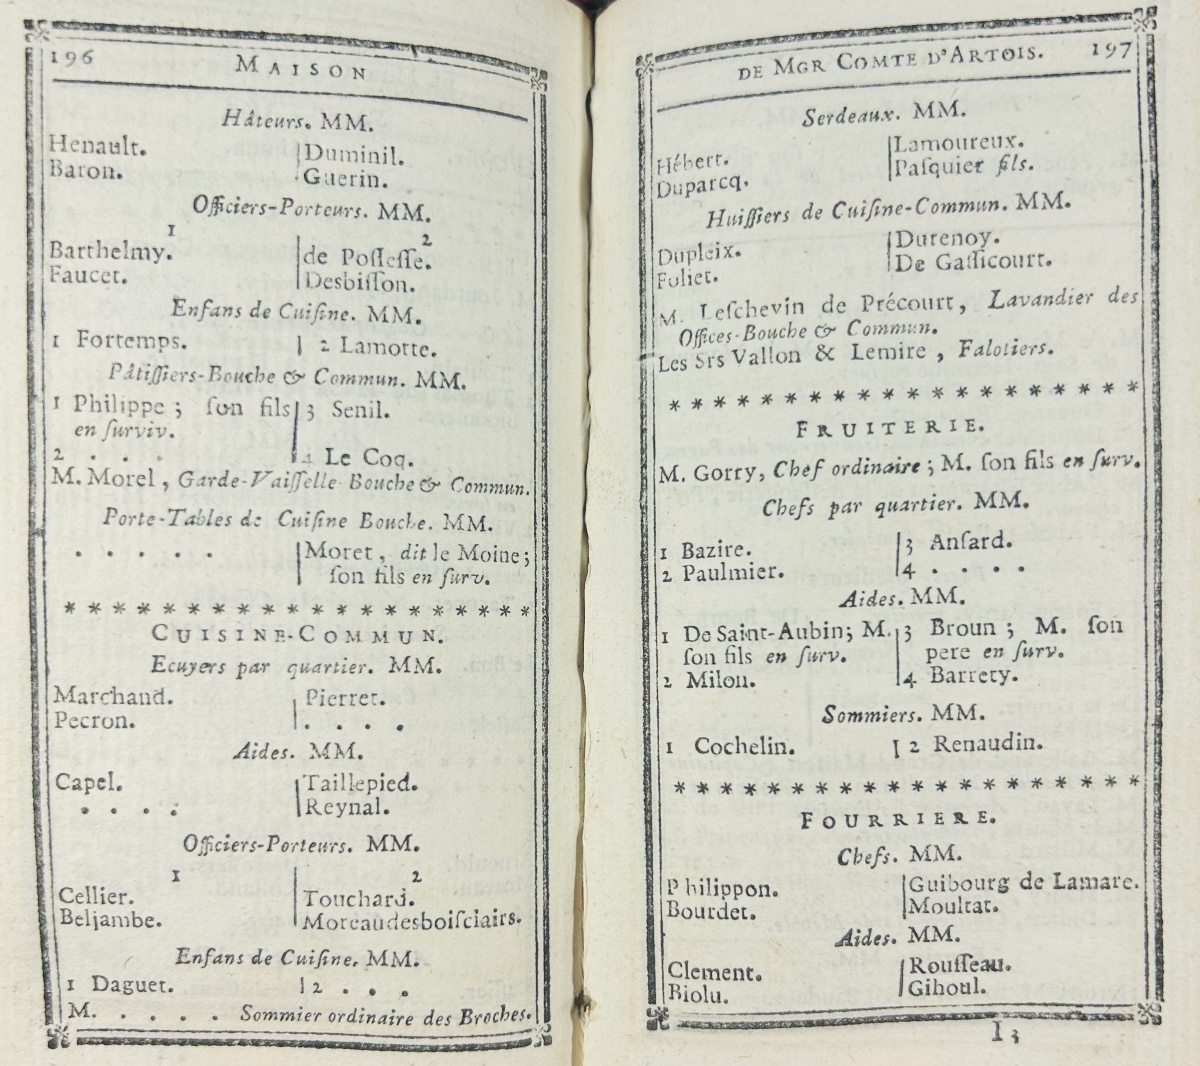 196 MAISON
Hâteurs. MM.
Henault. | Duminil.
Baron. | Guerin.
Officiers-Porteurs. MM.
1 2
Barthelmy. | de Poſſeſſe.
Faucet. | Desbiſſon.
Enfans de Cuiſine. MM.
1 Fortemps. | 2 Lamotte.
Pâtiſſiers-Bouche & Commun. MM.
1 Philippe ; ſon fils | 3 Senil.
en ſurviv.
2 . . . | 4 Le Coq.
M. Morel, Garde-Vaiſſelle Bouche & Commun.
Porte-Tables de Cuiſine Bouche. MM.
. . . . . | Moret, dit le Moine ;
ſon fils en ſurv.
* * * * * * * * * * * * * * * * * * * *
CUISINE-COMMUN.
Ecuyers par quartier. MM.
Marchand. | Pierret.
Pecron. | . . . .
Aides. MM.
Capel. | Taillepied.
. . . . | Reynal.
Officiers-Porteurs. MM.
1 2
Cellier. | Touchard.
Beljambe. | Moreaudesboiſclairs.
Enfans de Cuiſine. MM.
1 Daguet. | 2 . . .
M. . . . . Sommier ordinaire des Broches.
DE MGR COMTE D'ARTOIS. 197
Serdeaux. MM.
Hébert. | Lamoureux.
Duparcq. | Paſquier fils.
Huiſſiers de Cuiſine-Commun. MM.
Dupleix. | Durenoy.
Foliet. | De Gaſſicourt.
M. Leſchevin de Précourt, Lavandier des
Offices-Bouche & Commun.
Les Srs Vallon & Lemire, Falotiers.
* * * * * * * * * * * * * * * * *
FRUITERIE.
M. Gorry, Chef ordinaire ; M. ſon fils en ſurv.
Chefs par quartier. MM.
1 Bazire. | 3 Anſard.
2 Paulmier. | 4 . . . .
Aides. MM.
1 De Saint-Aubin ; M. | 3 Broun ; M. ſon
ſon fils en ſurv. | pere en ſurv.
2 Milon. | 4 Barrety.
Sommiers. MM.
1 Cochelin. | 2 Renaudin.
* * * * * * * * * * * * * * * * *
FOURRIERE.
Chefs. MM.
Philippon. | Guibourg de Lamare.
Bourdet. | Moultat.
Aides. MM.
Clement. | Rouſſeau.
Biolu. | Gihoul.
I 3